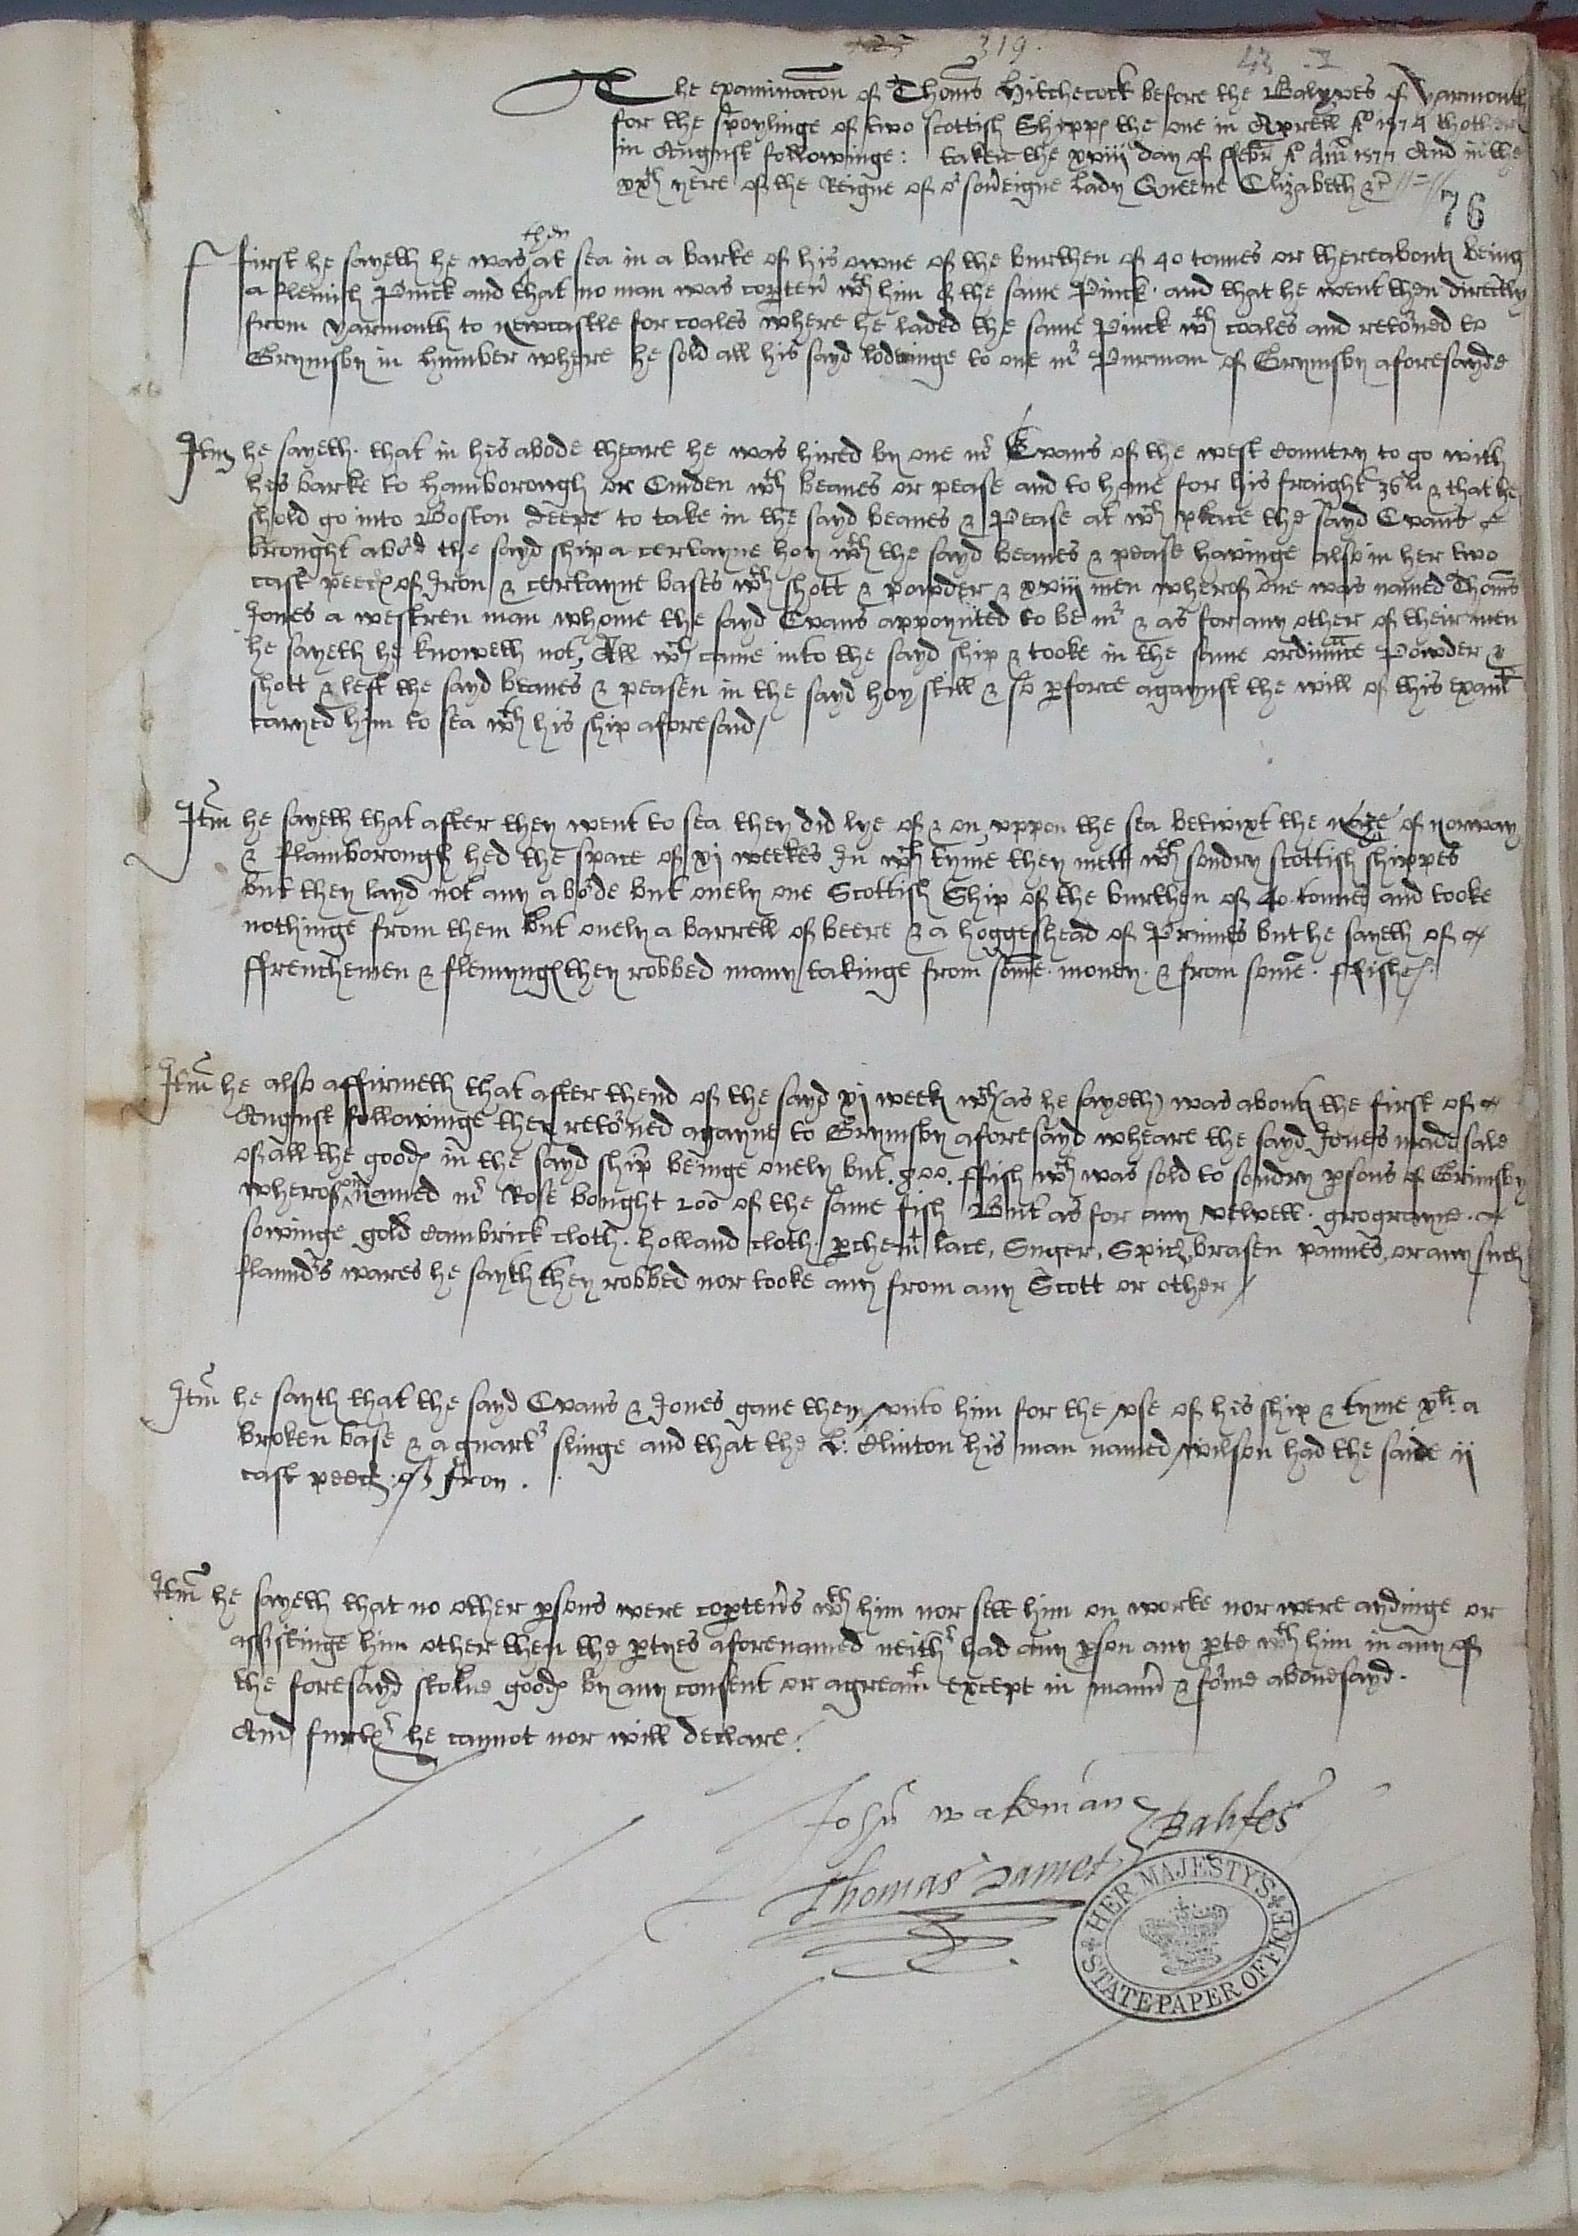 319.
43 . I
The examinacon of Thoms Hitchecock before the Balyves of Yarmouth
for the spoylinge of two Scottish Shipps the one in Aprell Ao 1574 thother
in August followinge: taken the xviii day of ffebr Ao dni 1577 And in the
xxth yere of the Reigne of or soveigne Lady Queene Elizabeth &c
76
then
first he sayeth he was at sea in a barke of his owne of the burthen of 40 tonnes or thereabouts being
a flemish Pinck and that no man was copartenr wth him of the same Pinck. and that he went then directly
from Yarmouth to Newcastle for coales where he laded the same Pinck wth coales and retorned to
Grymsby in humber where he sold all his sayd lodeinge to one mr Purman of Grymsby aforesayde
Itm he sayeth. that in his abode theare he was hired by one mr Evans of the west Country to go with
his barke to Hamborough or Emden wth beanes or pease and to have for his fraight 36li & that he
shold go into Boston deepe to take in the sayd beanes & Pease at wch place the sayd Evans
brought abord the sayd ship a certayne hoy wth the sayd beanes & pease havinge also in her two
cast peecs of Iron & certayne bases wth shott & powder & xviii men wherof one was named Thoms
Jones a westren man whome the sayd Evans appoynted to be mr & as for any other of their men
he sayeth he knoweth not, All wch came into the sayd ship & tooke in the same ordinnce Powder &
shott & left the sayd beanes & peasen in the sayd hoy still & so pforce agaynst the will of this exant
caryed him to sea wth his ship aforesaid /
Itm he sayeth that after they went to sea they did lye of & on uppon the sea betwixt the of Norway
& flamborough hed the space of xi weekes In wch tyme they mett wth sondry scottish shippes
but they layd not any aborde but onely one Scottish Ship of the burthen of 40. tonnes and tooke
nothinge from them but onely a barrell of beere & a hoggeshead of Prunes but he sayeth of
ffrenchemen & flemyngs they robbed many takinge from some. money. & from some. ffishe
Itm he also affirmeth that after thend of the sayd xi weeks wch (as he sayeth) was abouts the first of
August followinge they retorned agayne to Grymsby aforesayd wheare the sayd Jones made sale
of all the goods in the sayd ship beinge onely but. 900. ffish wch was sold to sondry psons of Grimsby
one
wherof named mr Rose bought 200 of the same fish But as for any velvett. grograyne.
sowinge gold Cambrick cloth. Holland cloth. pchemt lace, Suger, Spice, brasen pannes, or any such
flaundrs wares he sayth they robbed nor tooke any from any Scott or other /
Itm he sayth that the sayd Evans & Jones gave them unto him for the use of his ship & tyme xli. a
broken base & a quartr slinge and that the L: Clinton his man named Wilson had the saide ii
cast peecs of Iron.
Itm he sayeth that no other psons were copartenrs wth him nor sett him on worke nor were aydinge or
assistinge him other then the ptyes aforenamed neithr had any pson any pte wth him in any of
the foresayd stolne goods by any consent or agreamt except in mannr & forme abovesayd.
And furthr he cannot nor will declare.
John wakeman
Balifes
Thomas Damet
HER MAJESTY'S
STATE PAPER OFFICE